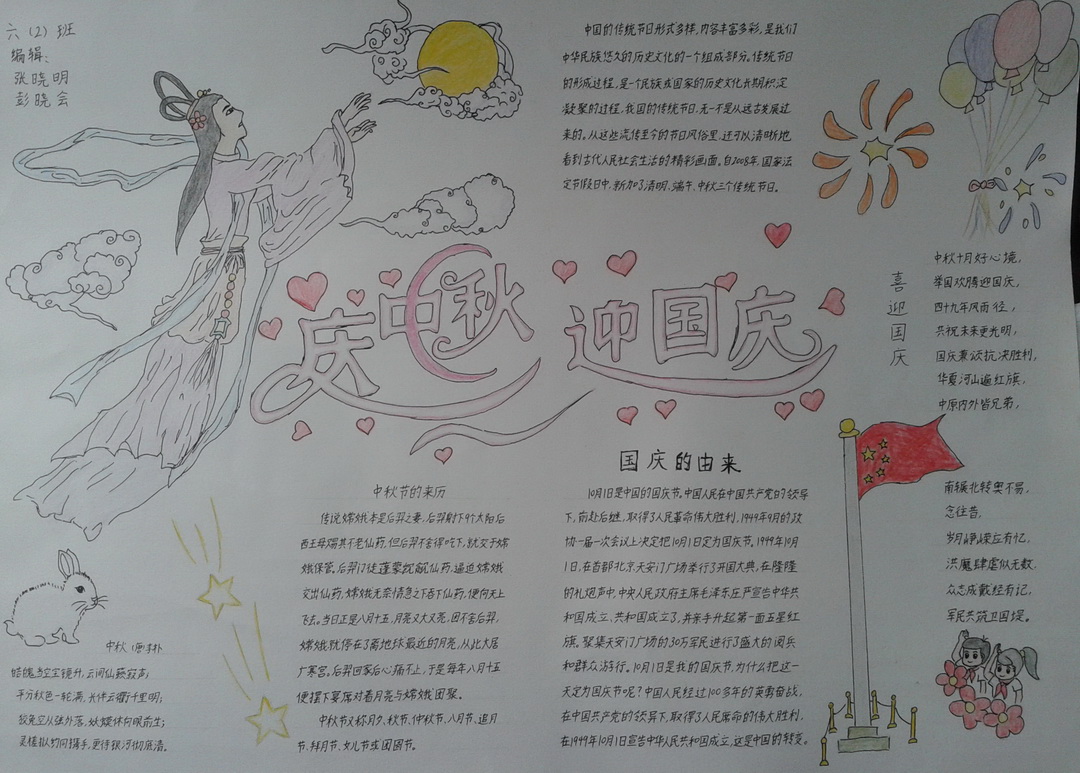 六（2）班
编辑：
张晓明
彭晓会
中国的传统节日形式多样，内容丰富多彩，是我们
中华民族悠久的历史文化的一个组成部分。传统节日
的形成过程，是一个民族或国家的历史文化长期积淀
凝聚的过程，我国的传统节日，无一不是从远古发展过
来的。从这些流传至今的节日风俗里，还可以清晰地
看到古代人民社会生活的精彩画面。自2008年，国家法
定节假日中，新加了清明、端午、中秋三个传统节日。
庆中秋 迎国庆
喜迎国庆
中秋十月好心境，
举国欢腾迎国庆，
四十九年风雨径，
共祝未来更光明，
国庆兼颂抗洪胜利，
华夏河山遍红旗，
中原内外皆兄弟，
南辕北转奥不易，
念往昔，
岁月峥嵘应有记，
洪魔肆虐似无数，
众志成城经有记，
军民共筑卫国堤。
中秋节的来历
传说嫦娥本是后羿之妻，后羿射下9个太阳后
西王母赐其不老仙药，但后羿不舍得吃下，就交于嫦
娥保管。后羿门徒蓬蒙觊觎仙药，逼迫嫦娥
交出仙药，嫦娥无奈情急之下吞下仙药，便向天上
飞去。当日正是八月十五，月亮又大又亮，因不舍后羿，
嫦娥就停在了离地球最近的月亮，从此长居
广寒宫。后羿回家后心痛不止，于是每年八月十五
便摆下宴席对着月亮与嫦娥团聚。
中秋节又称月夕、秋节、仲秋节、八月节、追月
节、拜月节、女儿节或团圆节。
国庆的由来
10月1日是中国的国庆节。中国人民在中国共产党的领导
下，前赴后继，取得了人民革命伟大胜利，1949年9月的政
协一届一次会议上决定把10月1日定为国庆节。1949年10月
1日，在首都北京天安门广场举行了开国大典，在隆隆
的礼炮声中，中央人民政府主席毛泽东庄严宣告中华共
和国成立，共和国成立了，并亲手升起第一面五星红
旗。聚集天安门广场的30万军民进行了盛大的阅兵
和群众游行。10月1日是我的国庆节，为什么把这一
天定为国庆节呢？中国人民经过100多年的英勇奋战，
在中国共产党的领导下，取得了人民革命的伟大胜利，
在1949年10月1日宣告中华人民共和国成立，这是中国的转变。
中秋 唐·李朴
皓魄当空宝镜升，云间仙籁寂声；
平分秋色一轮满，长伴云衢千里明；
狡兔空从弦外落，妖蟆休向眼前生；
灵槎拟约同携手，更待银河彻底清。